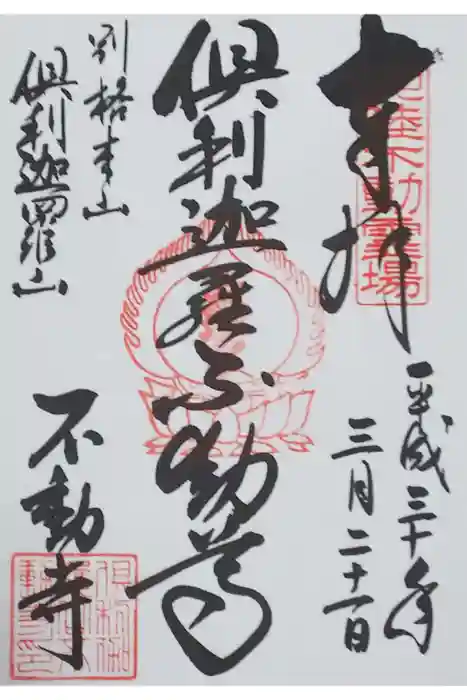 奉拝
平成三十年
三月二十一日
倶利迦羅不動尊
別格本山
倶利迦羅山
不動寺